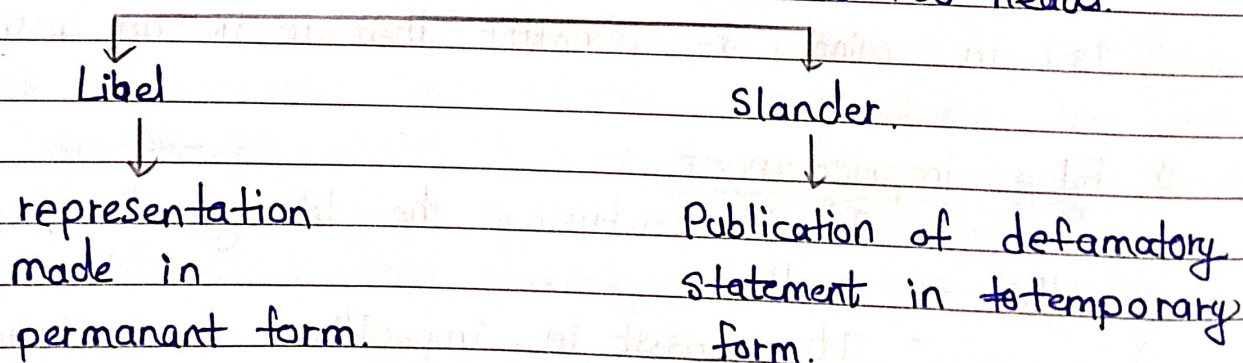 heads.
Libel
Slander.
representation
made in
permanant form.
Publication of defamatory
statement in temporary
form.